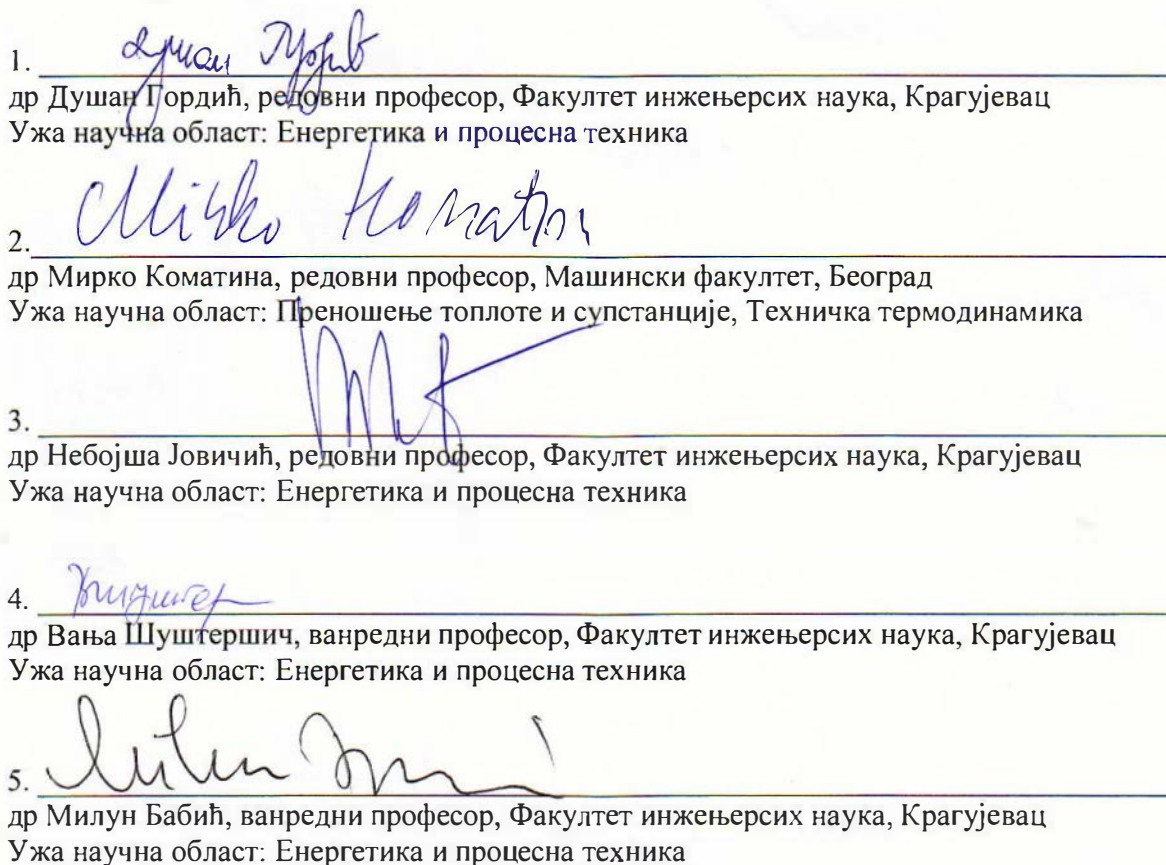 1.
др Душан Гордић, редовни професор, Факултет инжењерсих наука, Крагујевац
Ужа научна област: Енергетика и процесна техника
2. Мирко Коматина
др Мирко Коматина, редовни професор, Машински факултет, Београд
Ужа научна област: Преношење топлоте и супстанције, Техничка термодинамика
3.
др Небојша Јовичић, редовни професор, Факултет инжењерсих наука, Крагујевац
Ужа научна област: Енергетика и процесна техника
4.
др Вања Шуштершич, ванредни професор, Факултет инжењерсих наука, Крагујевац
Ужа научна област: Енергетика и процесна техника
5.
др Милун Бабић, ванредни професор, Факултет инжењерсих наука, Крагујевац
Ужа научна област: Енергетика и процесна техника